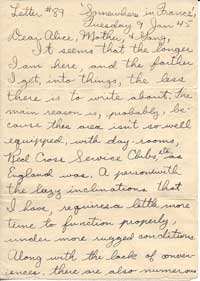 Letter #89 'Somewhere in France'
Tuesday 9 Jan 45
Dear Alice, Mother, & Gang,
It seems that the longer
I am here, and the farther
I get into things, the less
there is to write about. The
main reason is, probably, be-
cause this area isn't so well
equipped, with day-rooms,
Red Cross Service Clubs, etc. as
England was. A person with
the lazy inclinations that
I have, requires a little more
time to function properly,
under more rugged conditions.
Along with the lack of conven-
iences, there are also numerous